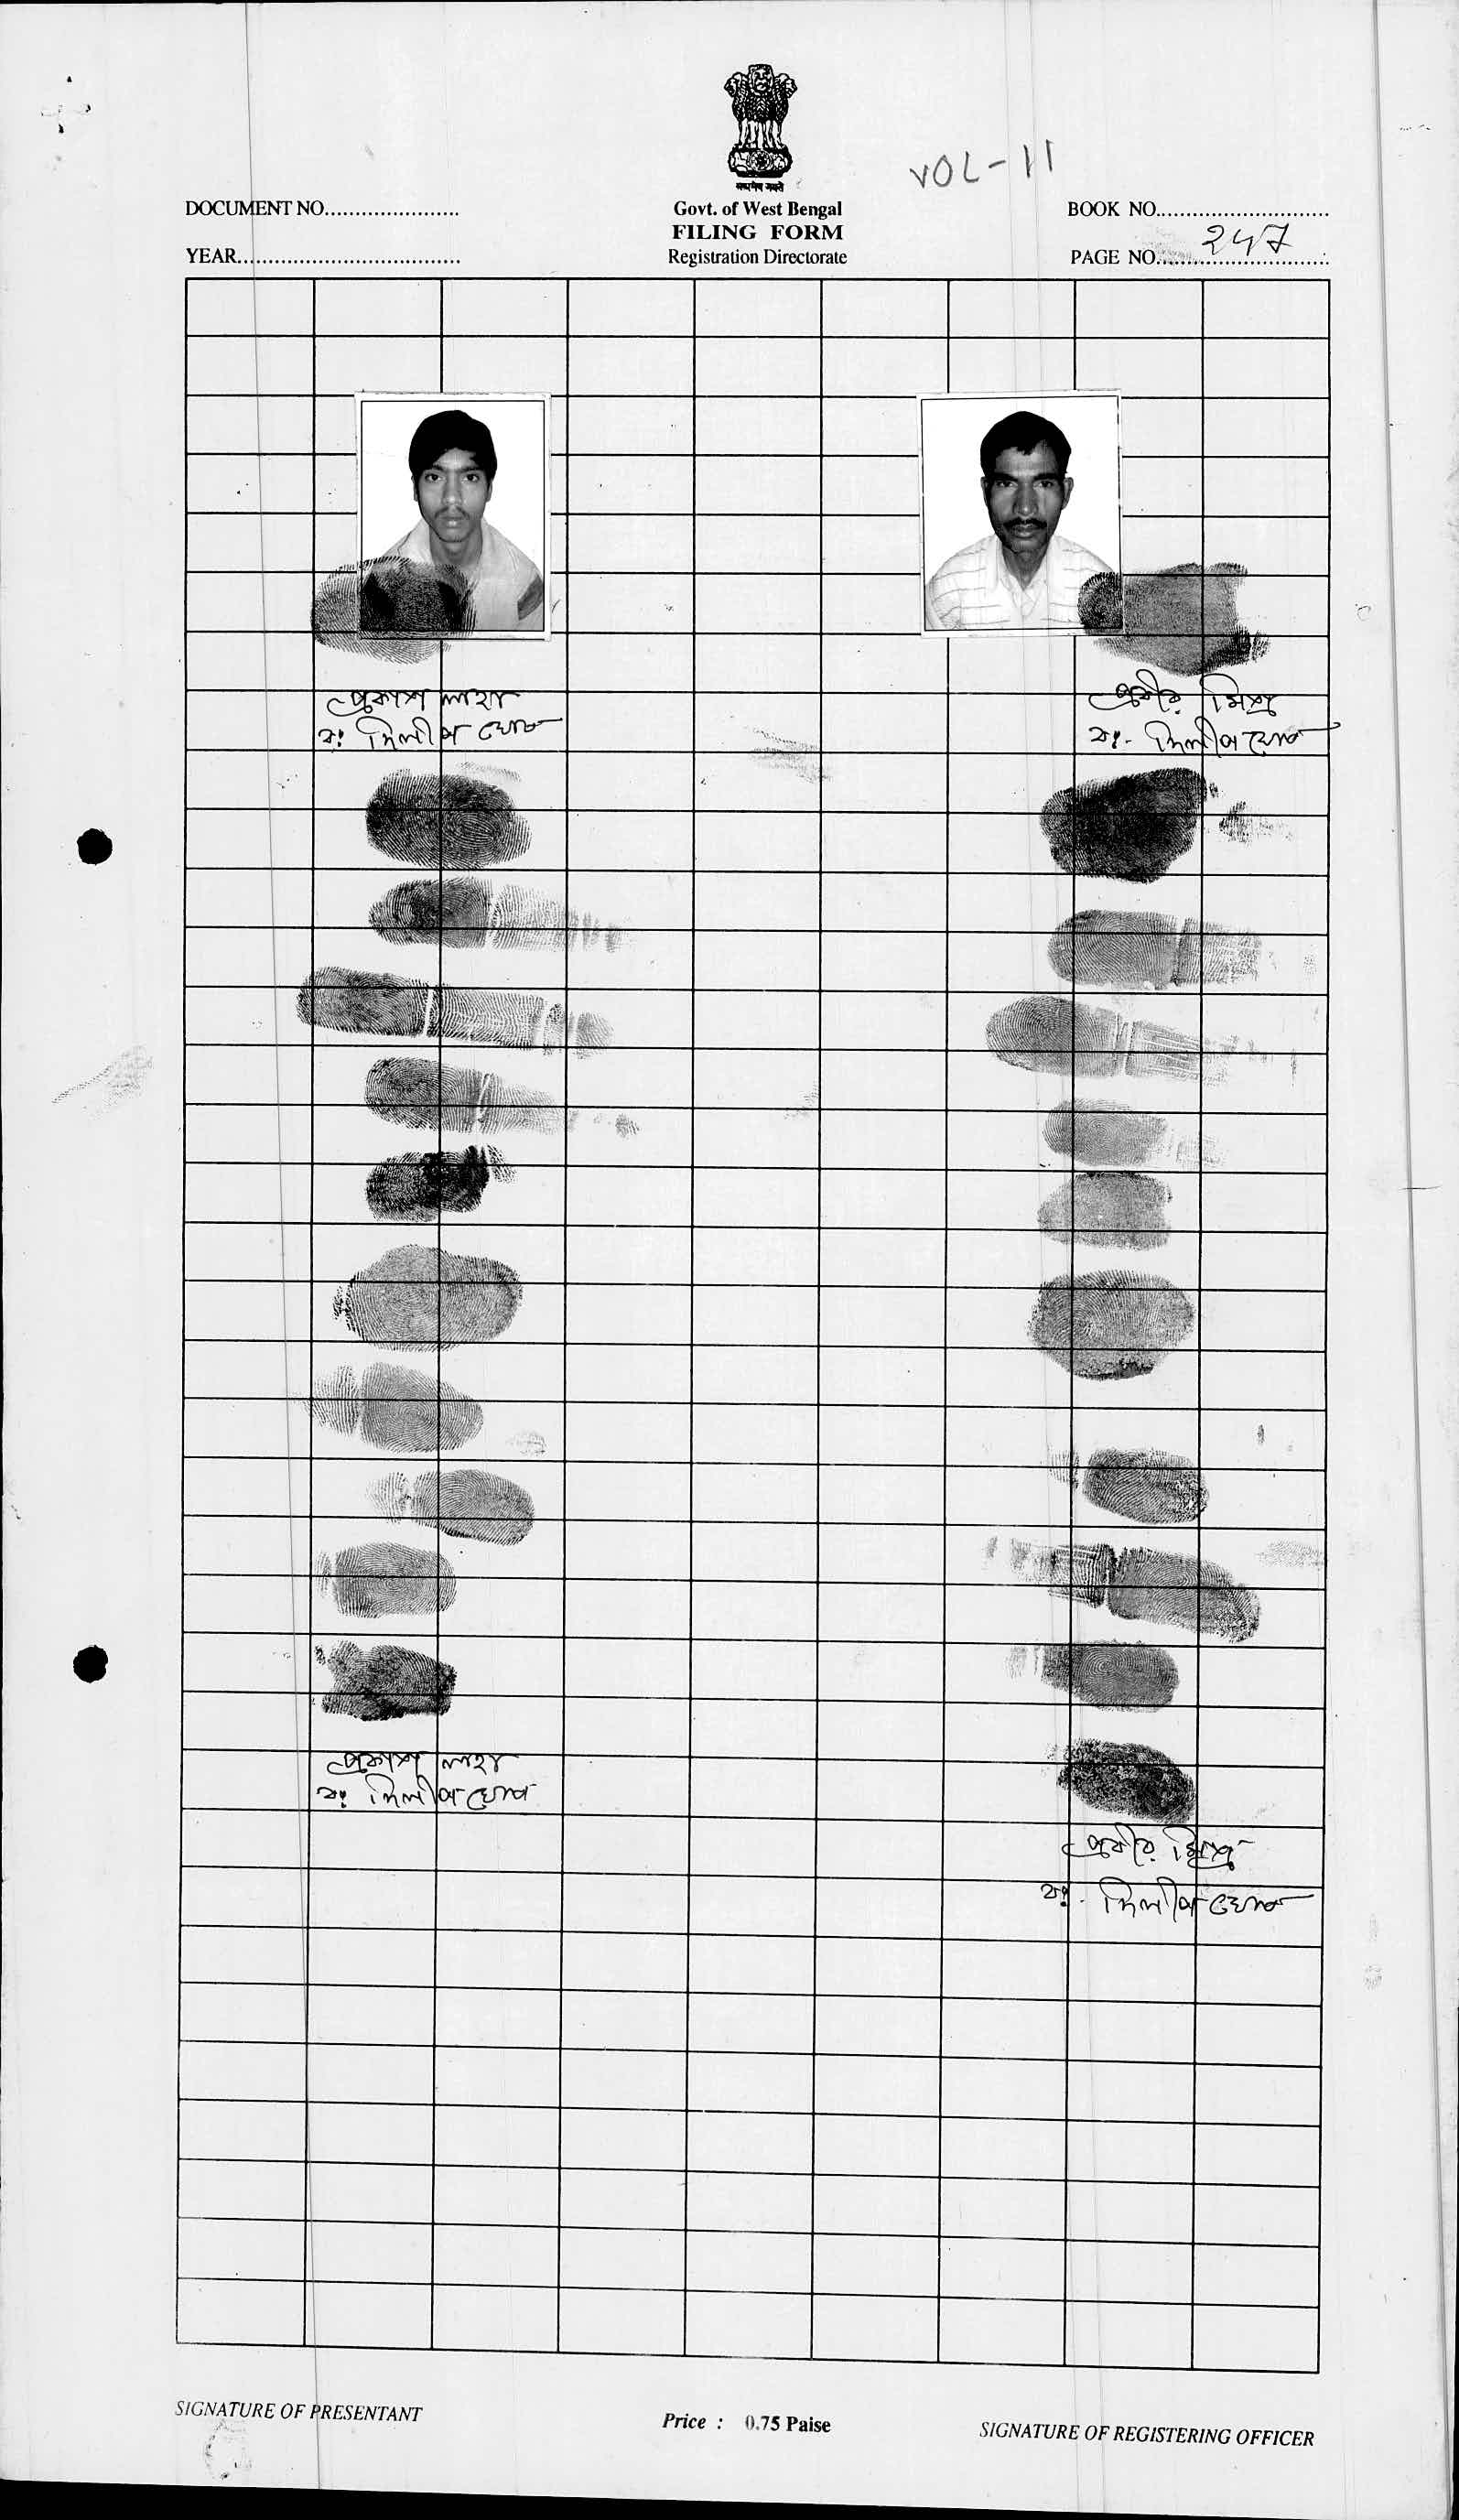 सत्यमेव जयते
VOL-11
DOCUMENT NO......................
Govt. of West Bengal
BOOK NO............................
FILING FORM
YEAR....................................
Registration Directorate
PAGE NO............................ 247
প্রকাশ লাহা
বঃ দিলীপ ঘোষ
প্রবীর মিশ্র
বঃ- দিলীপ ঘোষ
প্রকাশ লাহা
বঃ দিলীপ ঘোষ
প্রবীর মিশ্র
বঃ- দিলীপ ঘোষ
SIGNATURE OF PRESENTANT
Price : 0.75 Paise
SIGNATURE OF REGISTERING OFFICER